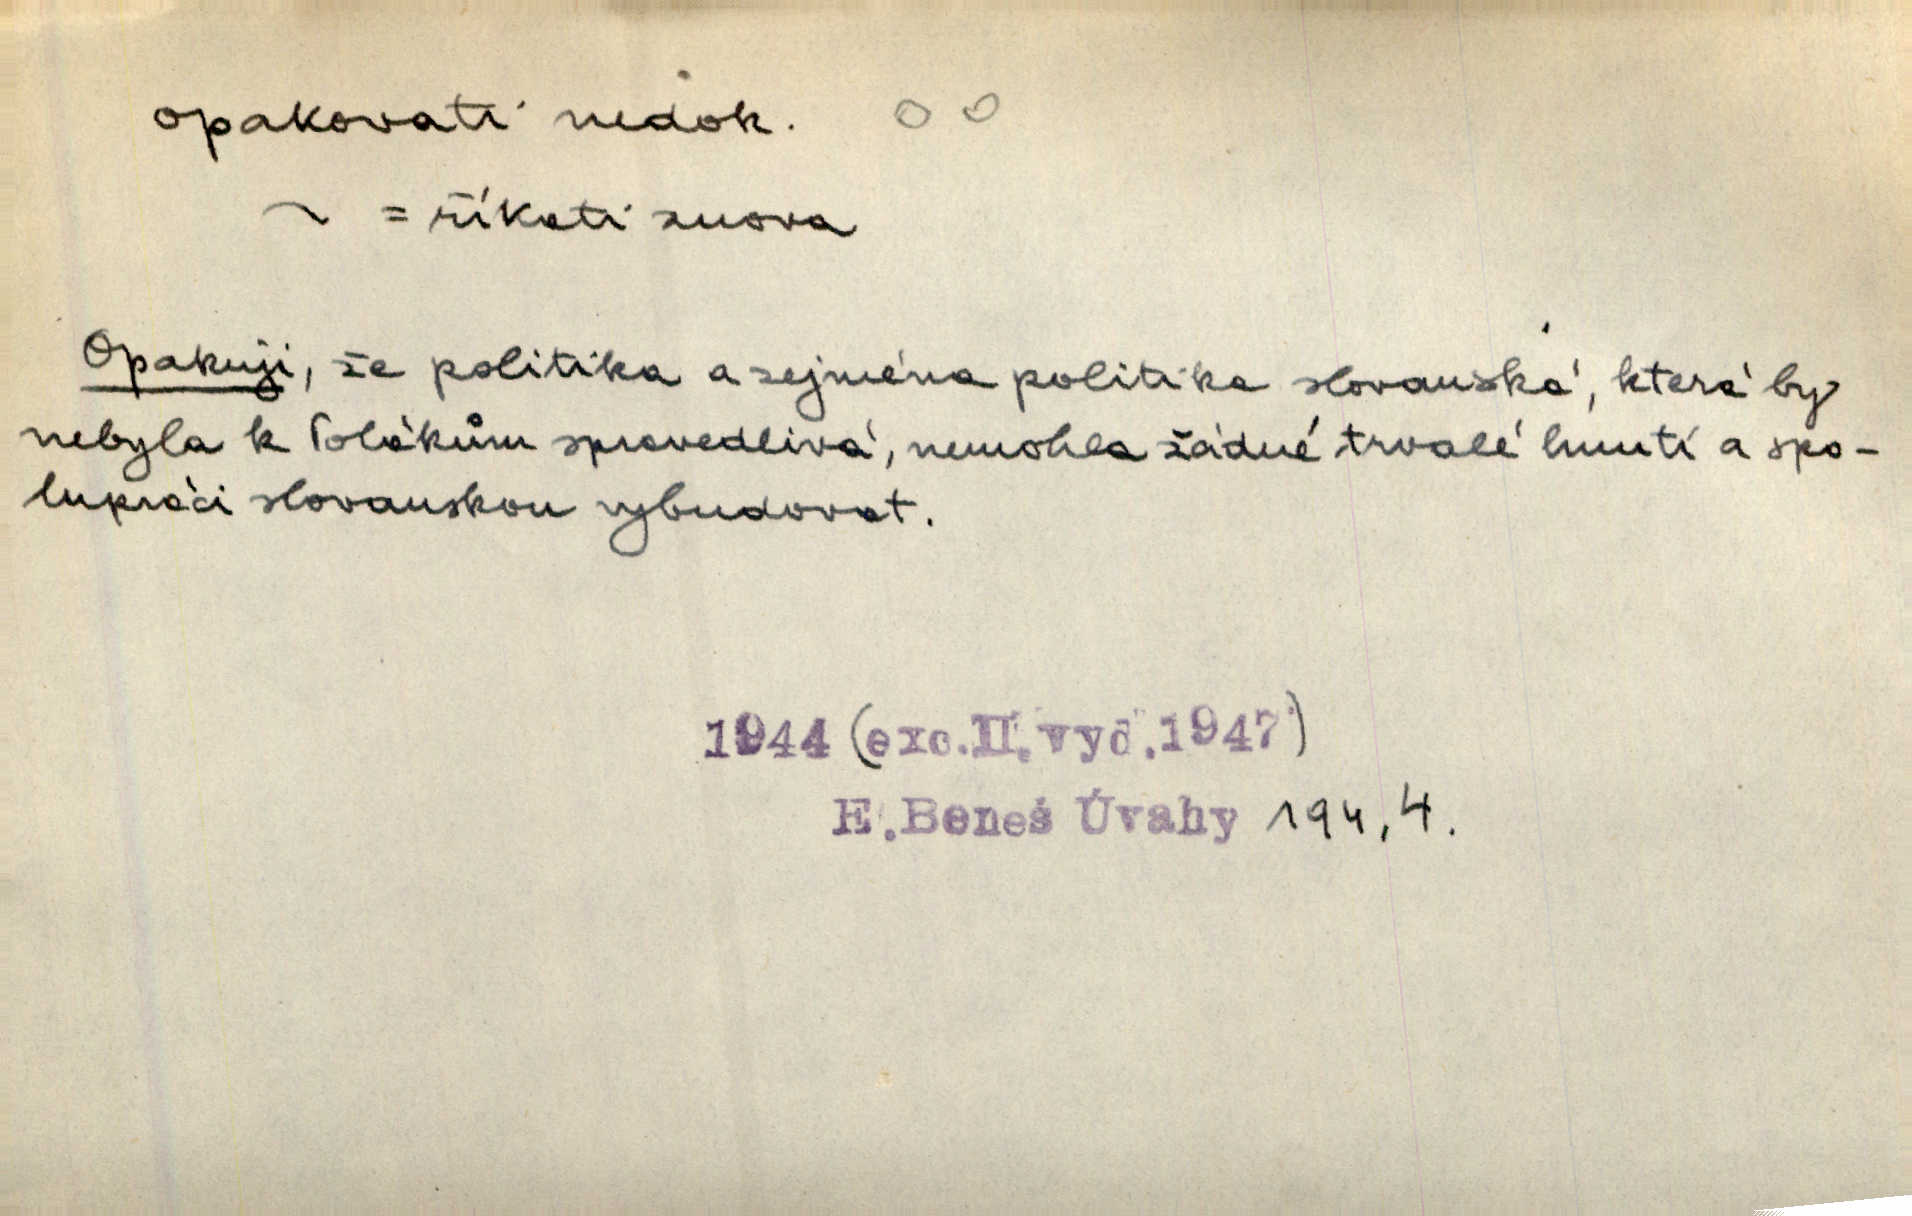 opakovati nedok.
~ = říkati znova
Opakuji, že politika a zejména politika slovanská, která by
nebyla k Polákům spravedlivá, nemohla žádné trvalé hnutí a spo-
lupráci slovanskou vybudovat.
1944 (exc.II.vyd.1947)
E.Beneš Úvahy 194, 4.